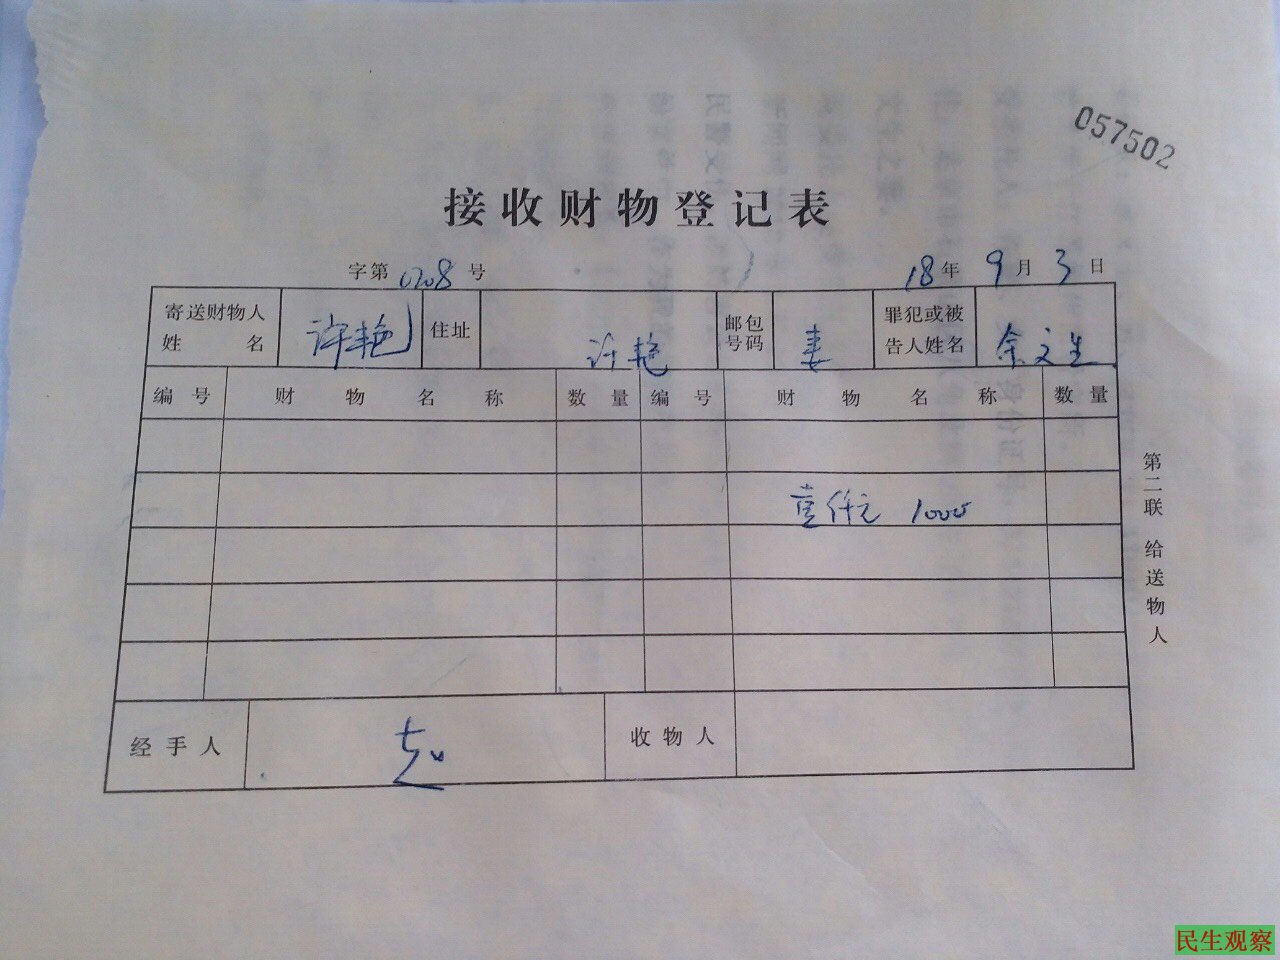 057502
接收财物登记表
字第0708号 18年9月3日
寄送财物人姓名 许艳 住址 许艳 邮包号码 妻 罪犯或被告人姓名 余文生
编号 财物名称 数量 编号 财物名称 数量
壹仟元 1000
经手人 收物人
第二联 给送物人
民生观察